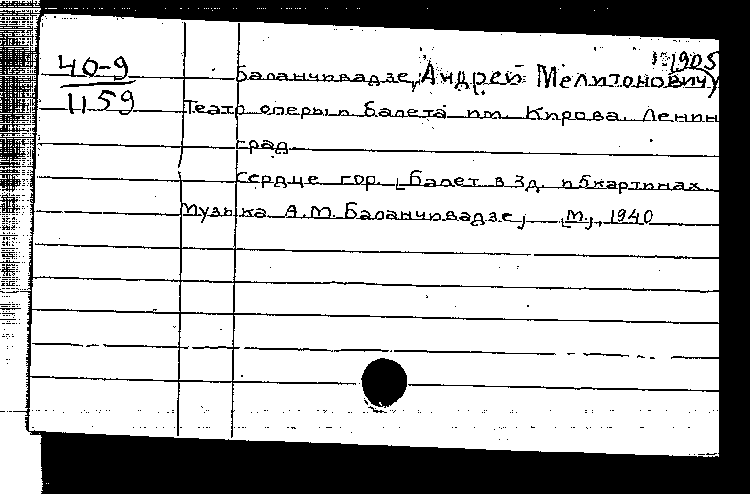 1905
40-9
1159
Баланчивадзе, Андрей Мелитонович
Театр оперы и балета им. Кирова. Ленин
град.
Сердце гор. [балет в 3д. и 5картинах.
Музыка А.М. Баланчивадзе, [М.], 1940